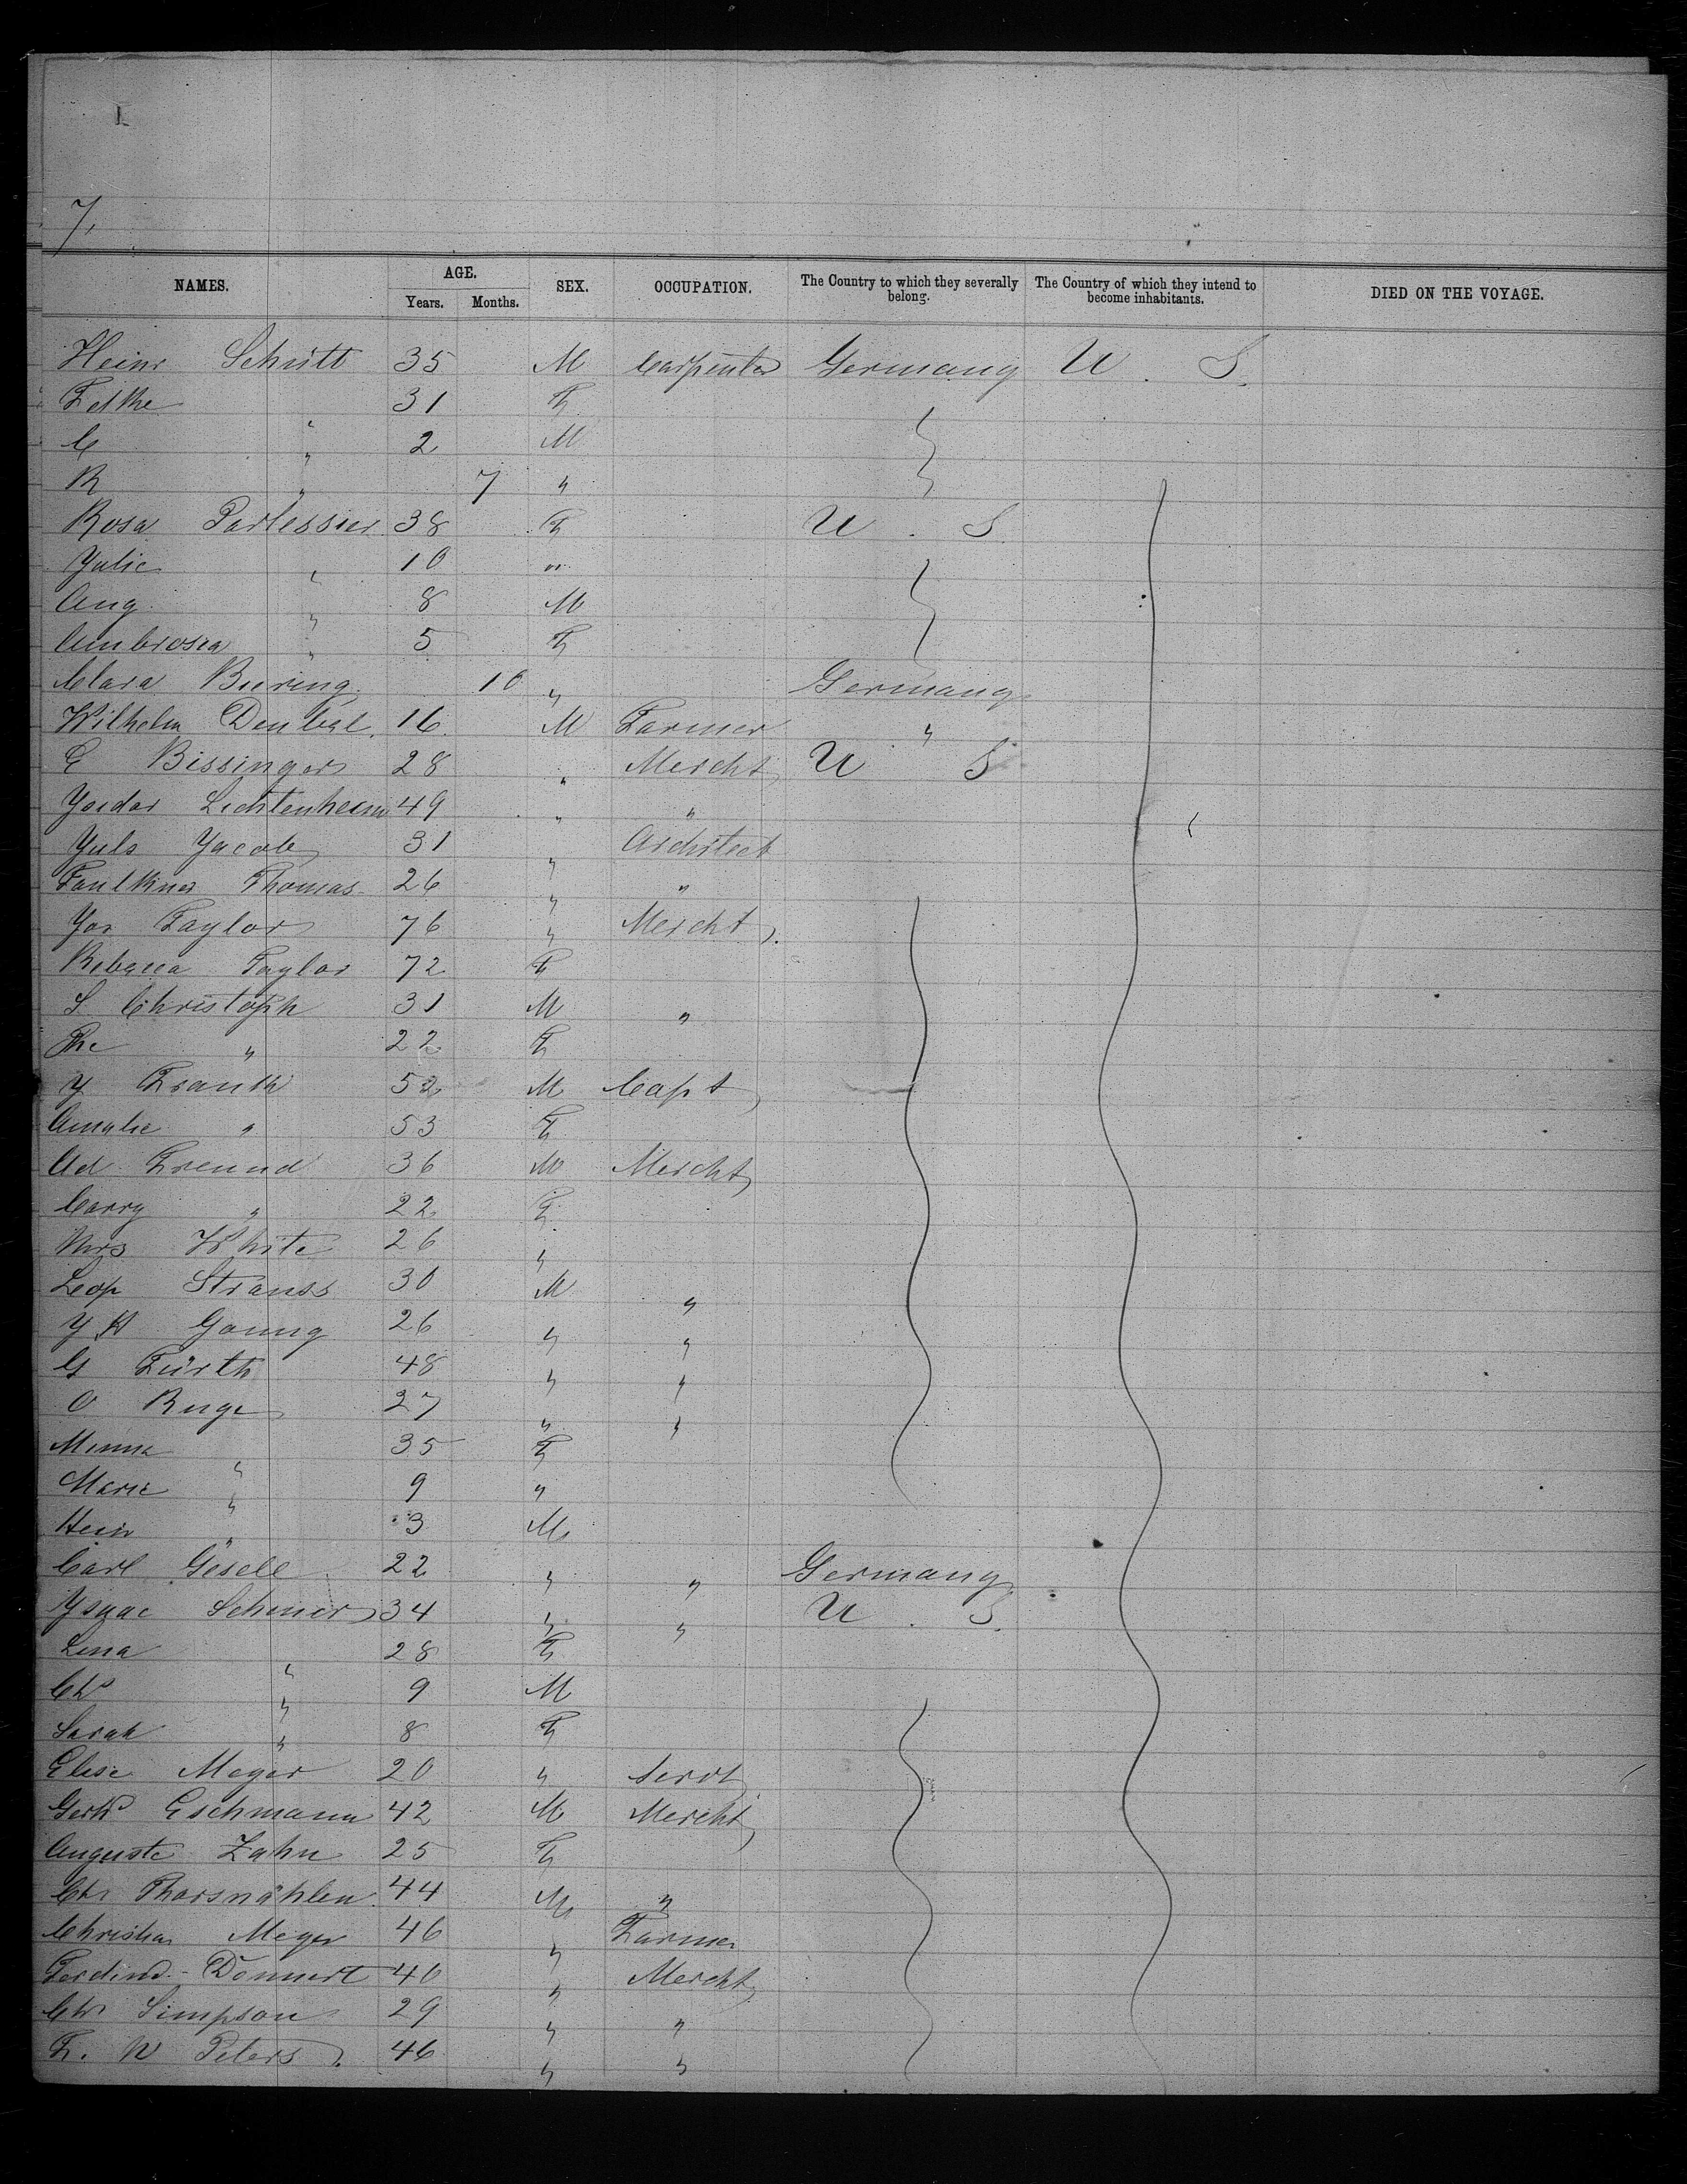 7.
NAMES. AGE. SEX. OCCUPATION. The Country to which they severally belong. The Country of which they intend to become inhabitants. DIED ON THE VOYAGE.
Years. Months.
Heinr Schütt 35 M Carpenter Germany U. S.
31 F
C " 2 M
R " 7 "
Rosa 38 F U. S.
Yulie " 10 "
Aug. " 8 M
Ambrosia " 5 F
Clara Buring 10 " Germany
Wilhelm 16 M Farmer "
E Bissinger 28 " Mercht U S
Lichtenheim 49 " "
Yuls Yacob 31 " Architect
Faulkner Thomas 26 " "
Yos Taylor 76 " Mercht
Rebecca Taylor 72 F
S Christoph 31 M "
The " 22 F
Y Frank 52 M Capt
Amalie " 53 F
Ad Freund 36 M Mercht
Carry " 22 F
Mrs White 26 "
Leop Strauss 30 M "
Y H Young 26 " "
G Fürth 48 " "
O Ruge 27 " "
Minna " 35 F
Marie " 9 "
Hein " 3 M
Carl Gesell 22 " " Germany
Ysaac 34 " " U. S.
Lina " 28 F
Chs " 9 M
Sarah " 8 F
Elise Meyer 20 " Servt
Gerhd Eschmann 42 M Mercht
Auguste Zahn 25 F
Chr 44 M "
Christian Meyer 46 " Farmer
Ferdind 40 " Mercht
Chr Simpson 29 " "
F. W Peters 46 " "